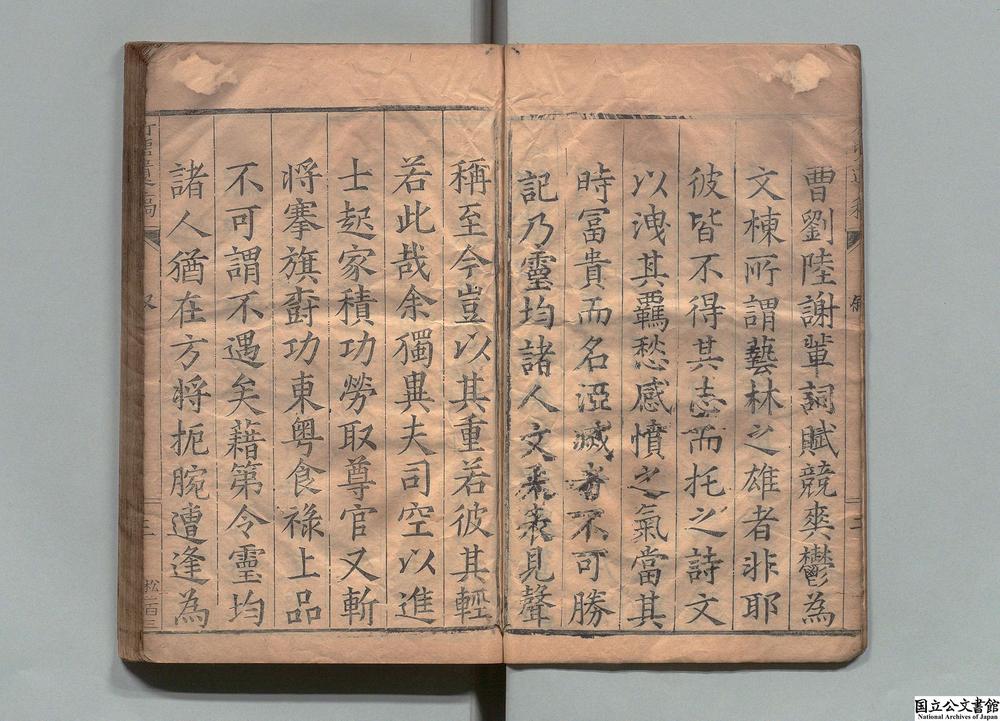 曹劉陸謝輩詞賦競爽鬱為
文棟所謂藝林之雄者非耶
彼皆不得其志而托之詩文
以洩其羈愁感憤之氣當其
時冨貴而名湮滅者不可勝
記乃靈均諸人文采表見聲
稱至今豈以其重若彼其輕
若此哉余獨異夫司空以進
士起家積功勞取尊官又斬
将搴旗奏功東粤食祿上品
不可謂不遇矣藉第令靈均
諸人猶在方将扼腕遭逢為
遺稿
叙
三
松一百三
国立公文書館
National Archives of Japan